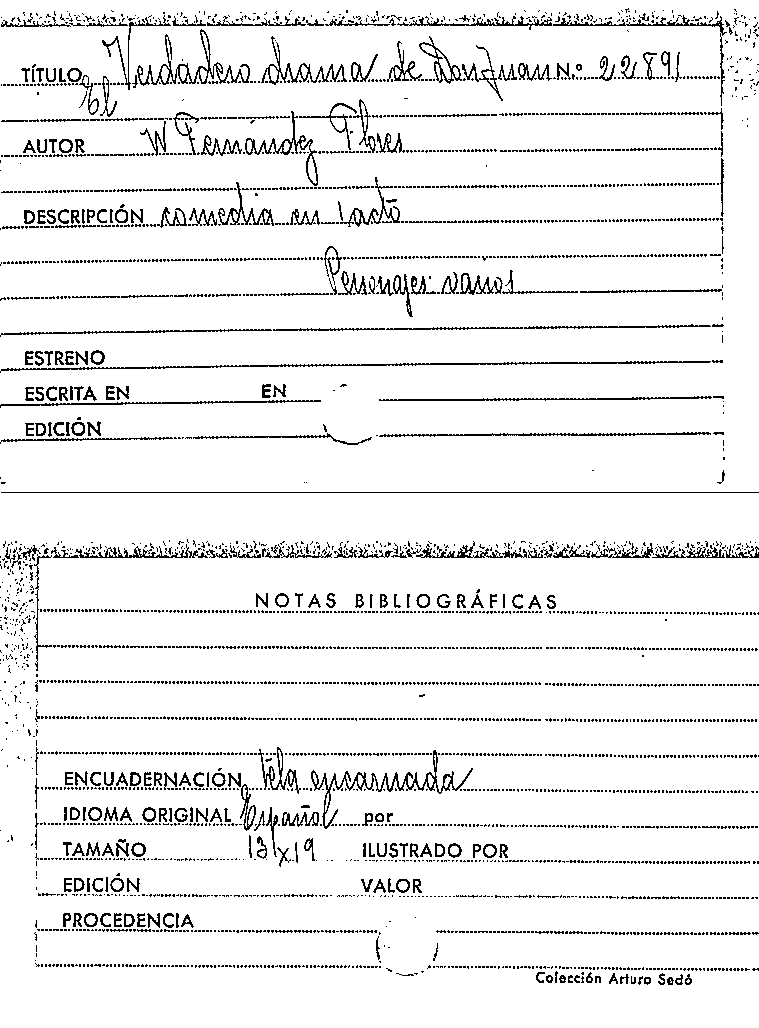 TÍTULO El Verdadero drama de Don Juan N.º 22891
AUTOR W Fernández Flores
DESCRIPCIÓN comedia en 1 acto
Personajes: varios
ESTRENO
ESCRITA EN EN
EDICIÓN
NOTAS BIBLIOGRÁFICAS
ENCUADERNACIÓN tela encarnada
IDIOMA ORIGINAL Español por
TAMAÑO 13x19 ILUSTRADO POR
EDICIÓN VALOR
PROCEDENCIA
Colección Arturo Sedó